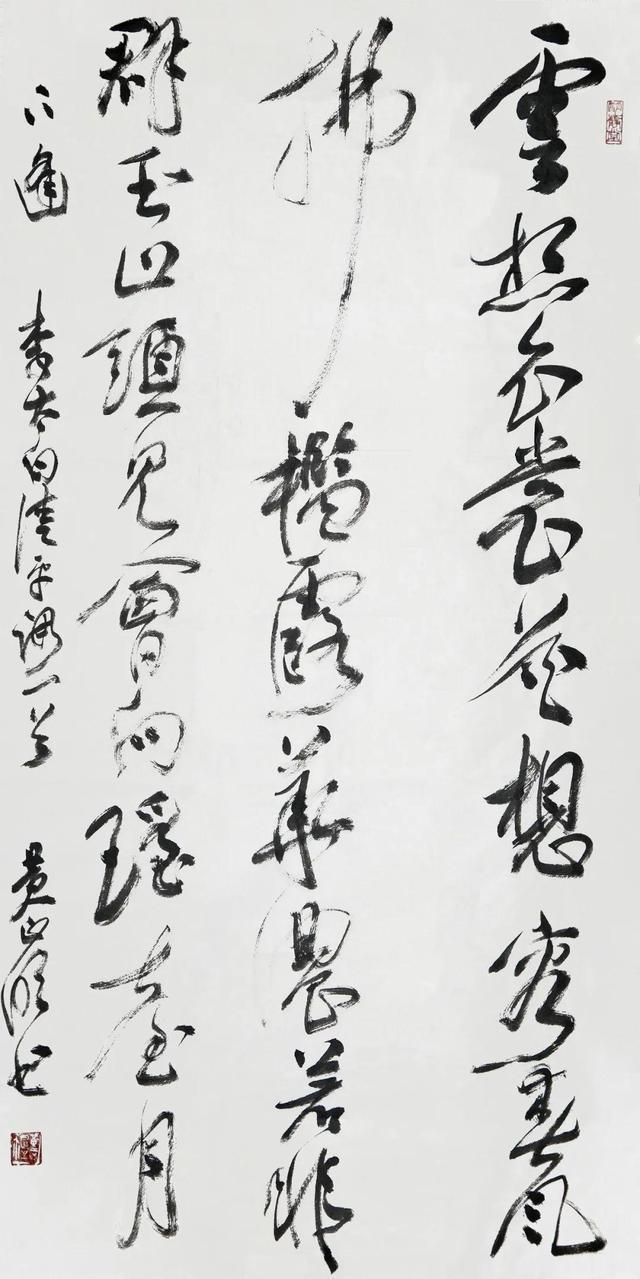 雲想衣裳花想容春風
拂檻露華濃若非
群玉山頭見會向瑤臺月
下逢 李太白清平調一首 黃 书